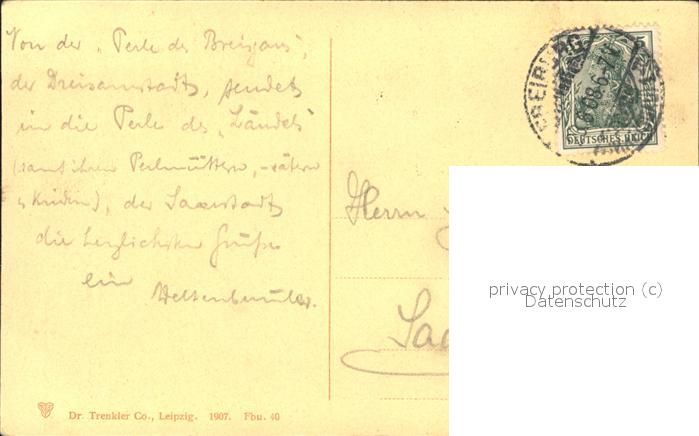 Von der „Perle des Breisgaus",
der Dreisamstadt, sendet
in die Perle des „Ländels"
(samt ihren Perlmüttern, -vätern
u Kindern), der Saarstadt
die herzlichsten Grüße
ein
Herrn
Saa
FREIBURG
DEUTSCHES REICH
5
privacy protection (c)
Datenschutz
Dr. Trenkler Co., Leipzig. 1907. Fbu. 40